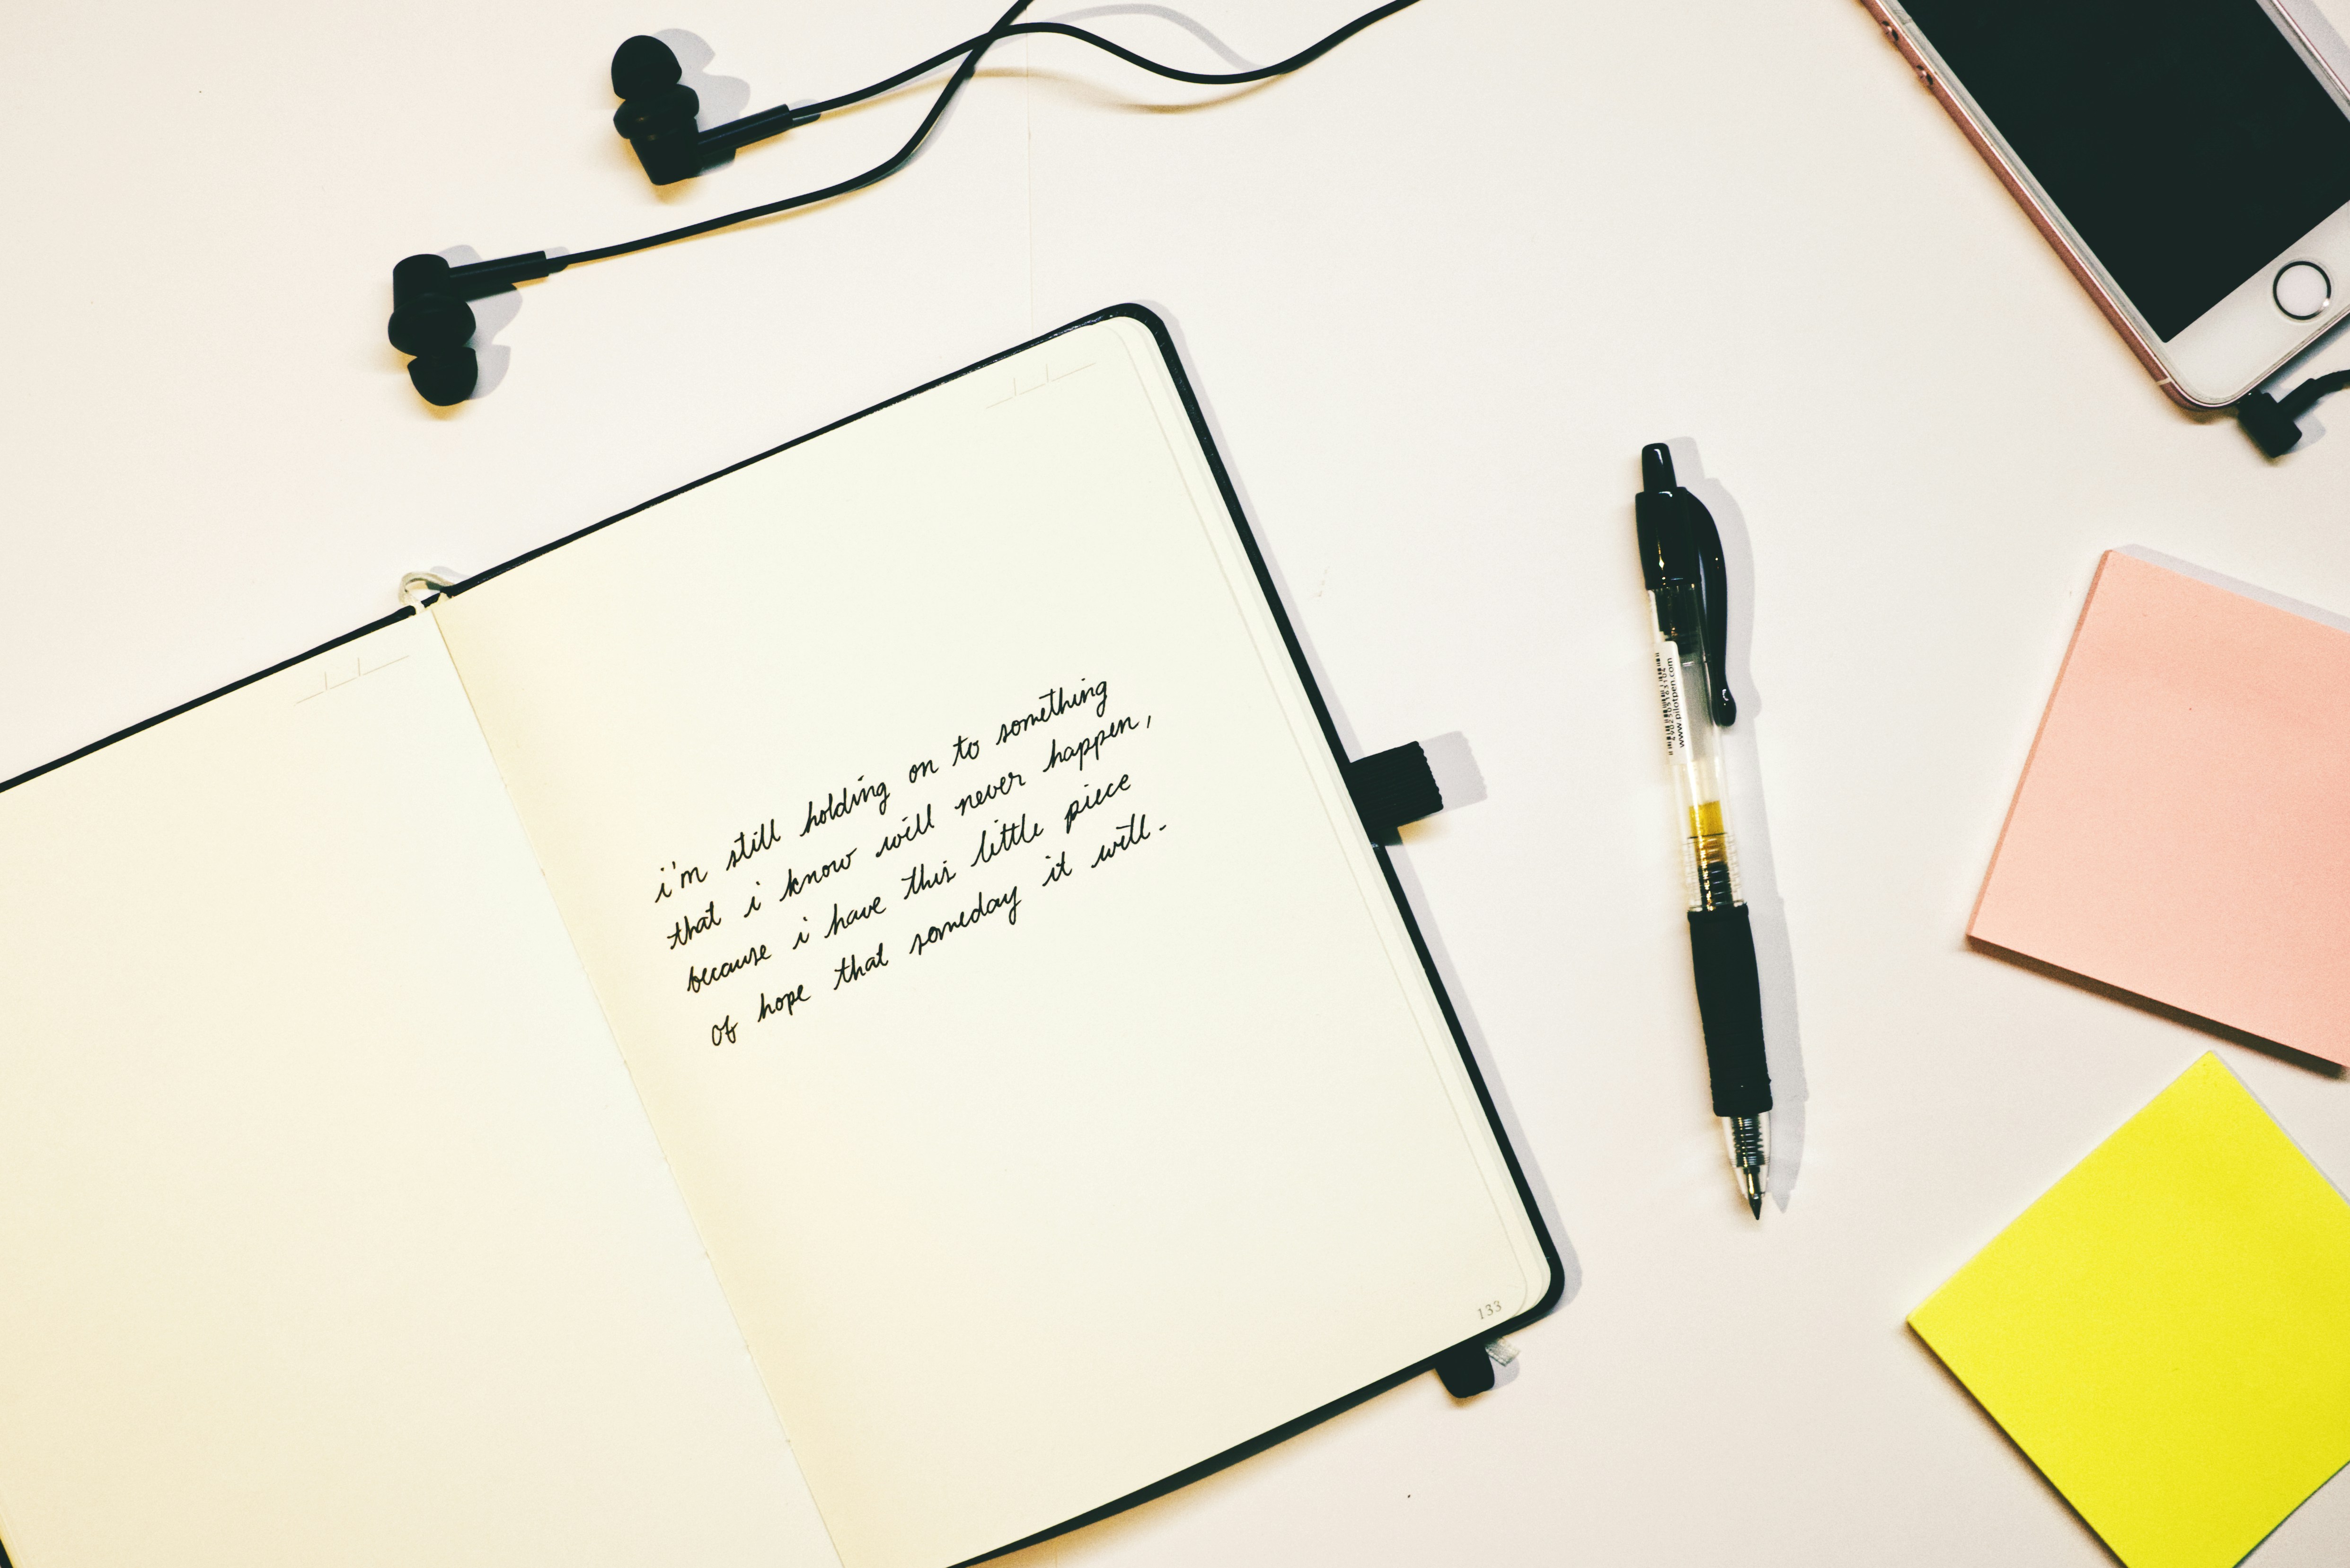 i'm still holding on to something
that i know will never happen,
because i have this little piece
of hope that someday it will.
133
www.pilotpen.com